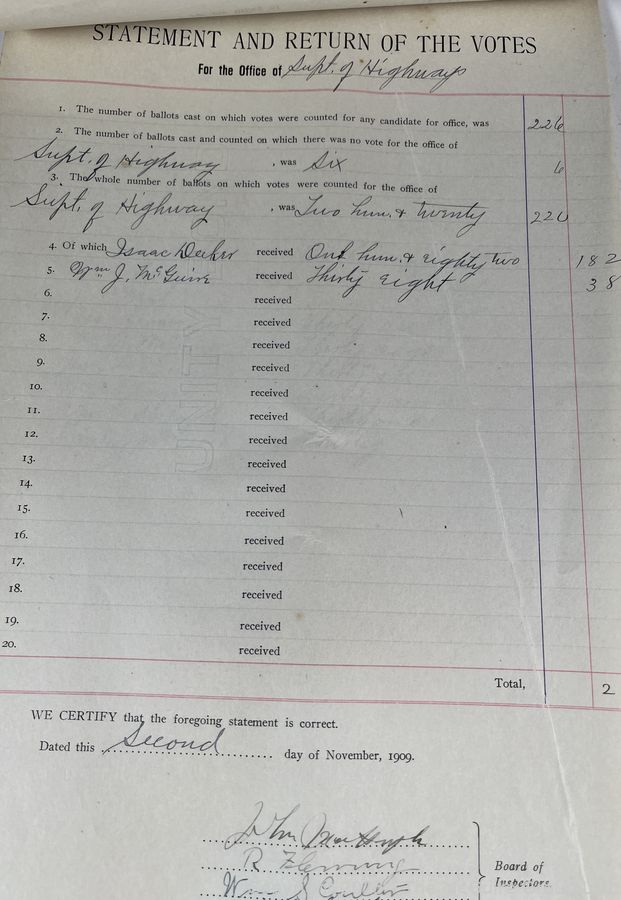 STATEMENT AND RETURN OF THE VOTES
For the Office of Supt. of Highways
1. The number of ballots cast on which votes were counted for any candidate for office, was 226
2. The number of ballots cast and counted on which there was no vote for the office of
Supt. of Highway, was Six 6
3. The whole number of ballots on which votes were counted for the office of
Supt. of Highway, was Two hun. & twenty 220
4. Of which Isaac Decker received One hun. & eighty two 182
5. Wm J. McGuire received Thirty eight 38
6. received
7. received
8. received
9. received
10. received
11. received
12. received
13. received
14. received
15. received
16. received
17. received
18. received
19. received
20. received
Total, 2
WE CERTIFY that the foregoing statement is correct.
Dated this Second day of November, 1909.
John
R Fleming Board of
Wm S Inspectors.
UNITY